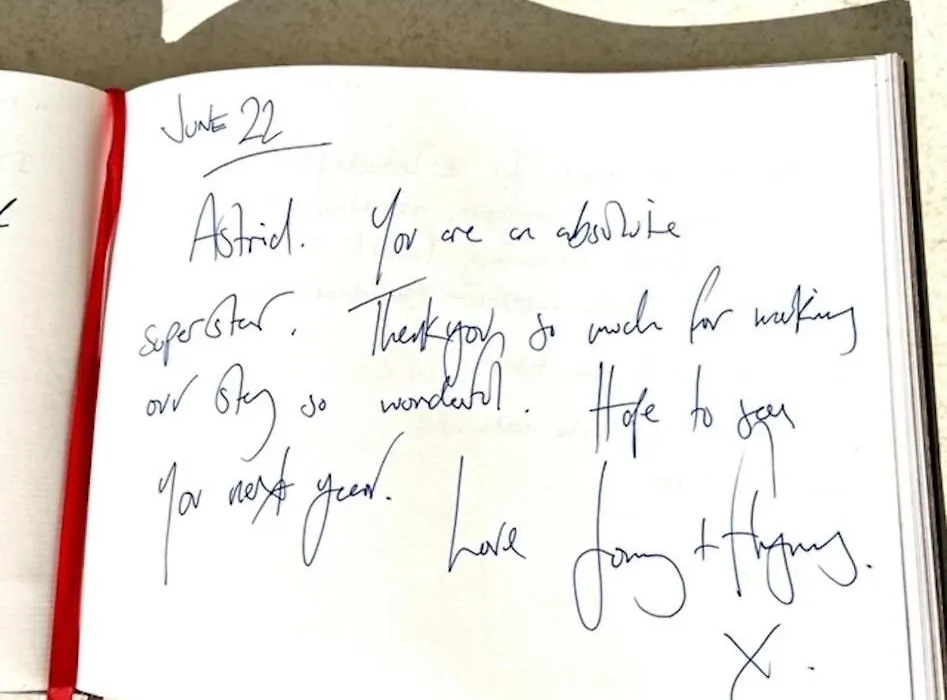 June 22
Astrid. You are an absolute
superstar. Thankyou so much for making
our stay so wonderful. Hope to see
you next year.
Love +
X.